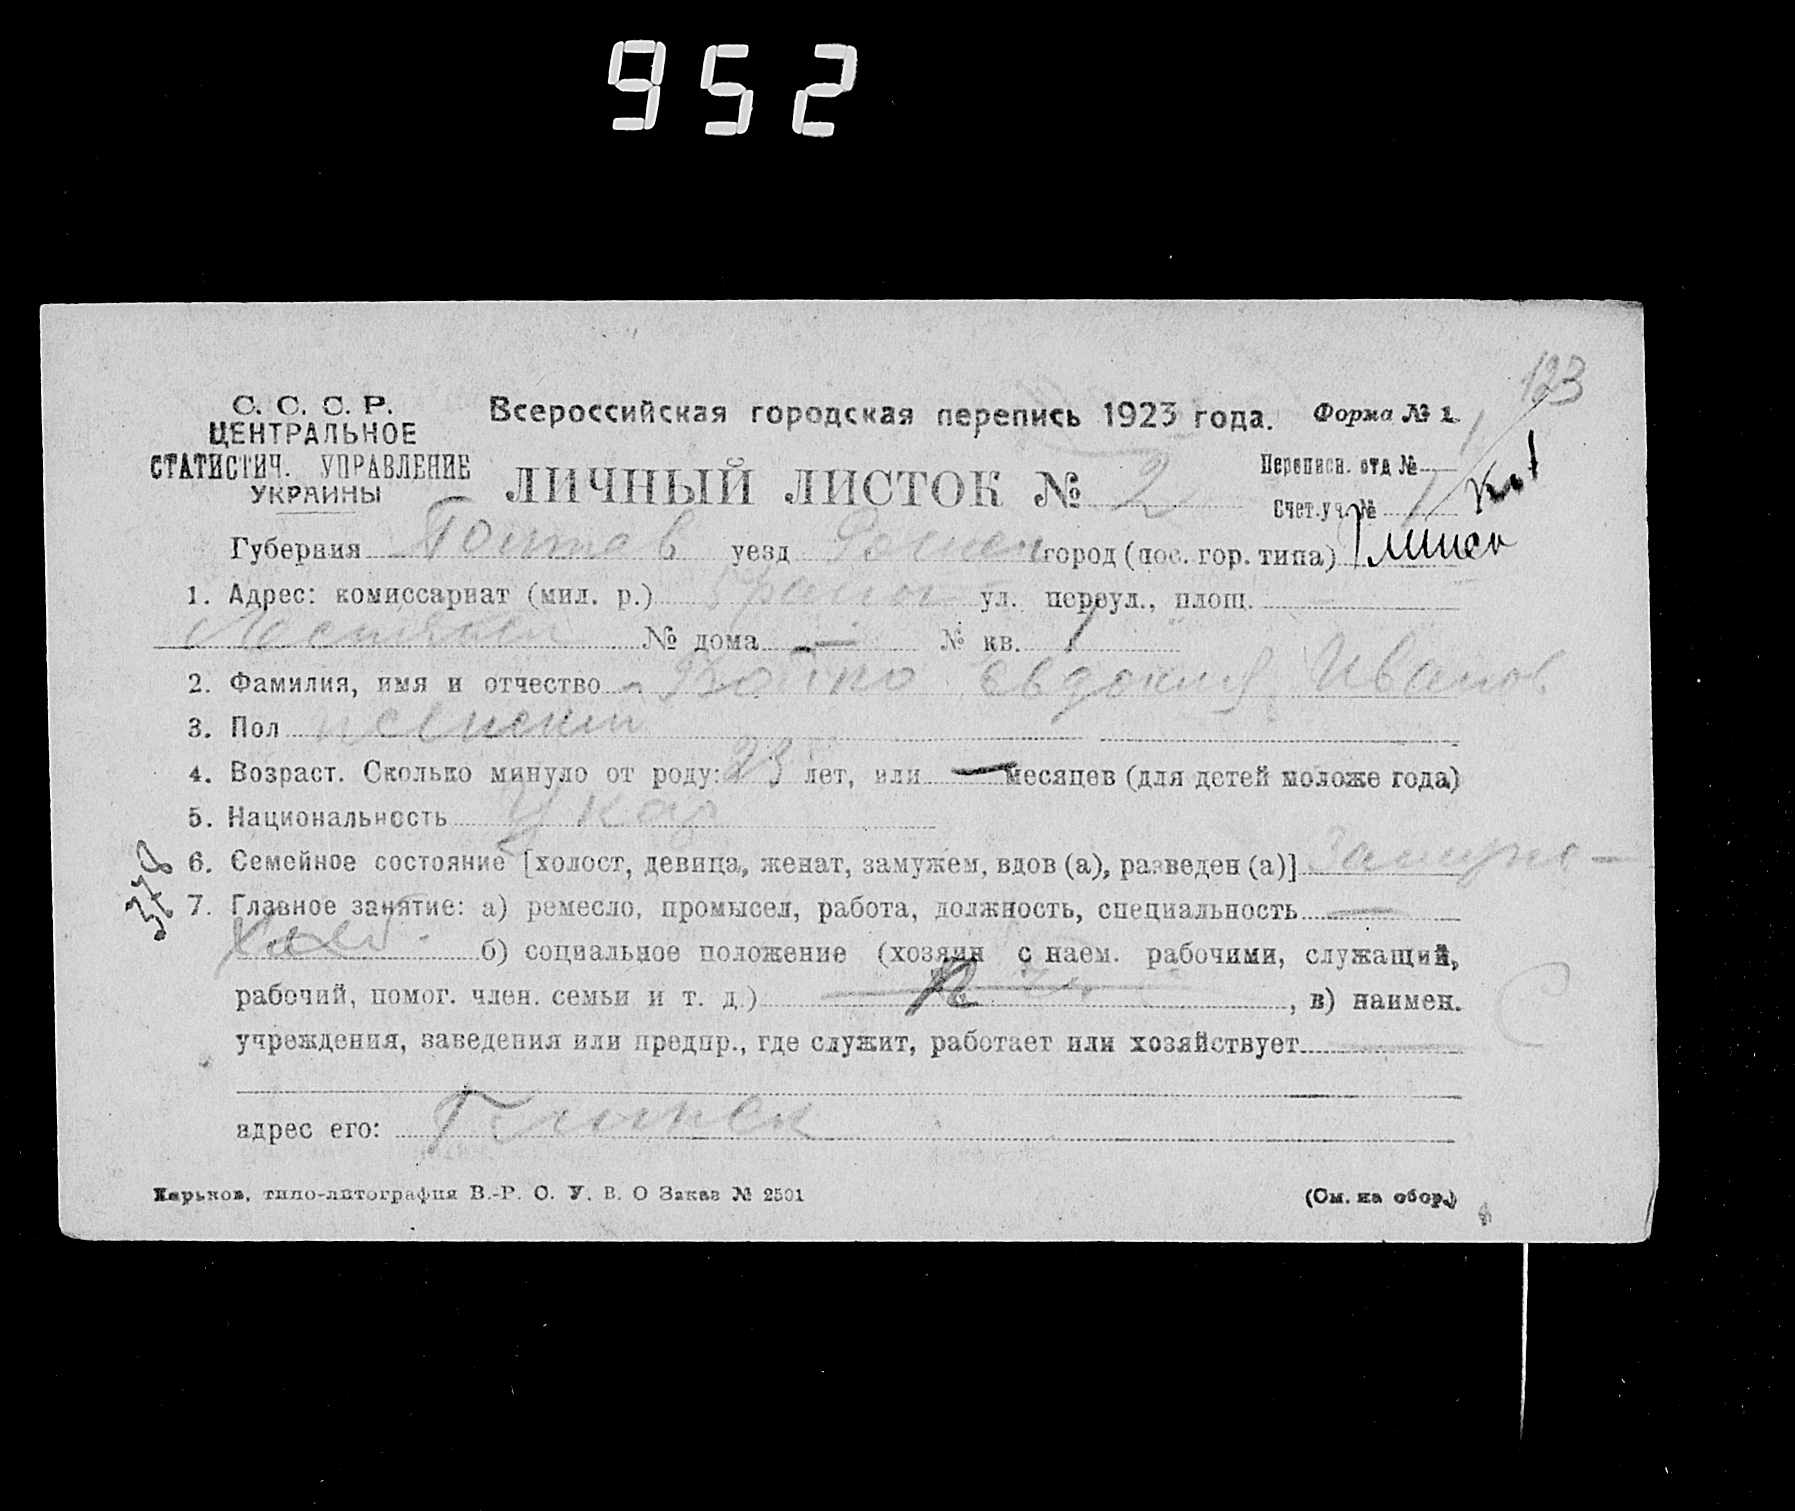 952
123
С. С. С. Р.
ЦЕНТРАЛЬНОЕ
СТАТИСТИЧ. УПРАВЛЕНИЕ
УКРАИНЫ
Всероссийская городская перепись 1923 года. Форма № 1.
ЛИЧНЫЙ ЛИСТОК № 2
Переписн. отд № 1
Счет.уч. № 1
Губерния Полтав уезд Ромен город (пос. гор. типа) Глинск
1. Адрес: комиссариат (мил. р.) район ул. переул., площ. —
№ дома — № кв. 1
2. Фамилия, имя и отчество Бойко Евдокия Иванов
3. Пол женский
4. Возраст. Сколько минуло от роду: 23 лет, или — месяцев (для детей моложе года)
5. Национальность Укр
6. Семейное состояние [холост, девица, женат, замужем, вдов (а), разведен (а)] Замуже-
378
7. Главное занятие: а) ремесло, промысел, работа, должность, специальность —
б) социальное положение (хозяин с наем. рабочими, служащий,
рабочий, помог. член. семьи и т. д.) , в) наимен.
учреждения, заведения или предпр., где служит, работает или хозяйствует
адрес его: Глинск
Харьков, типо-литография В.-Р. О. У. В. О Заказ № 2501
(См. на обор.)